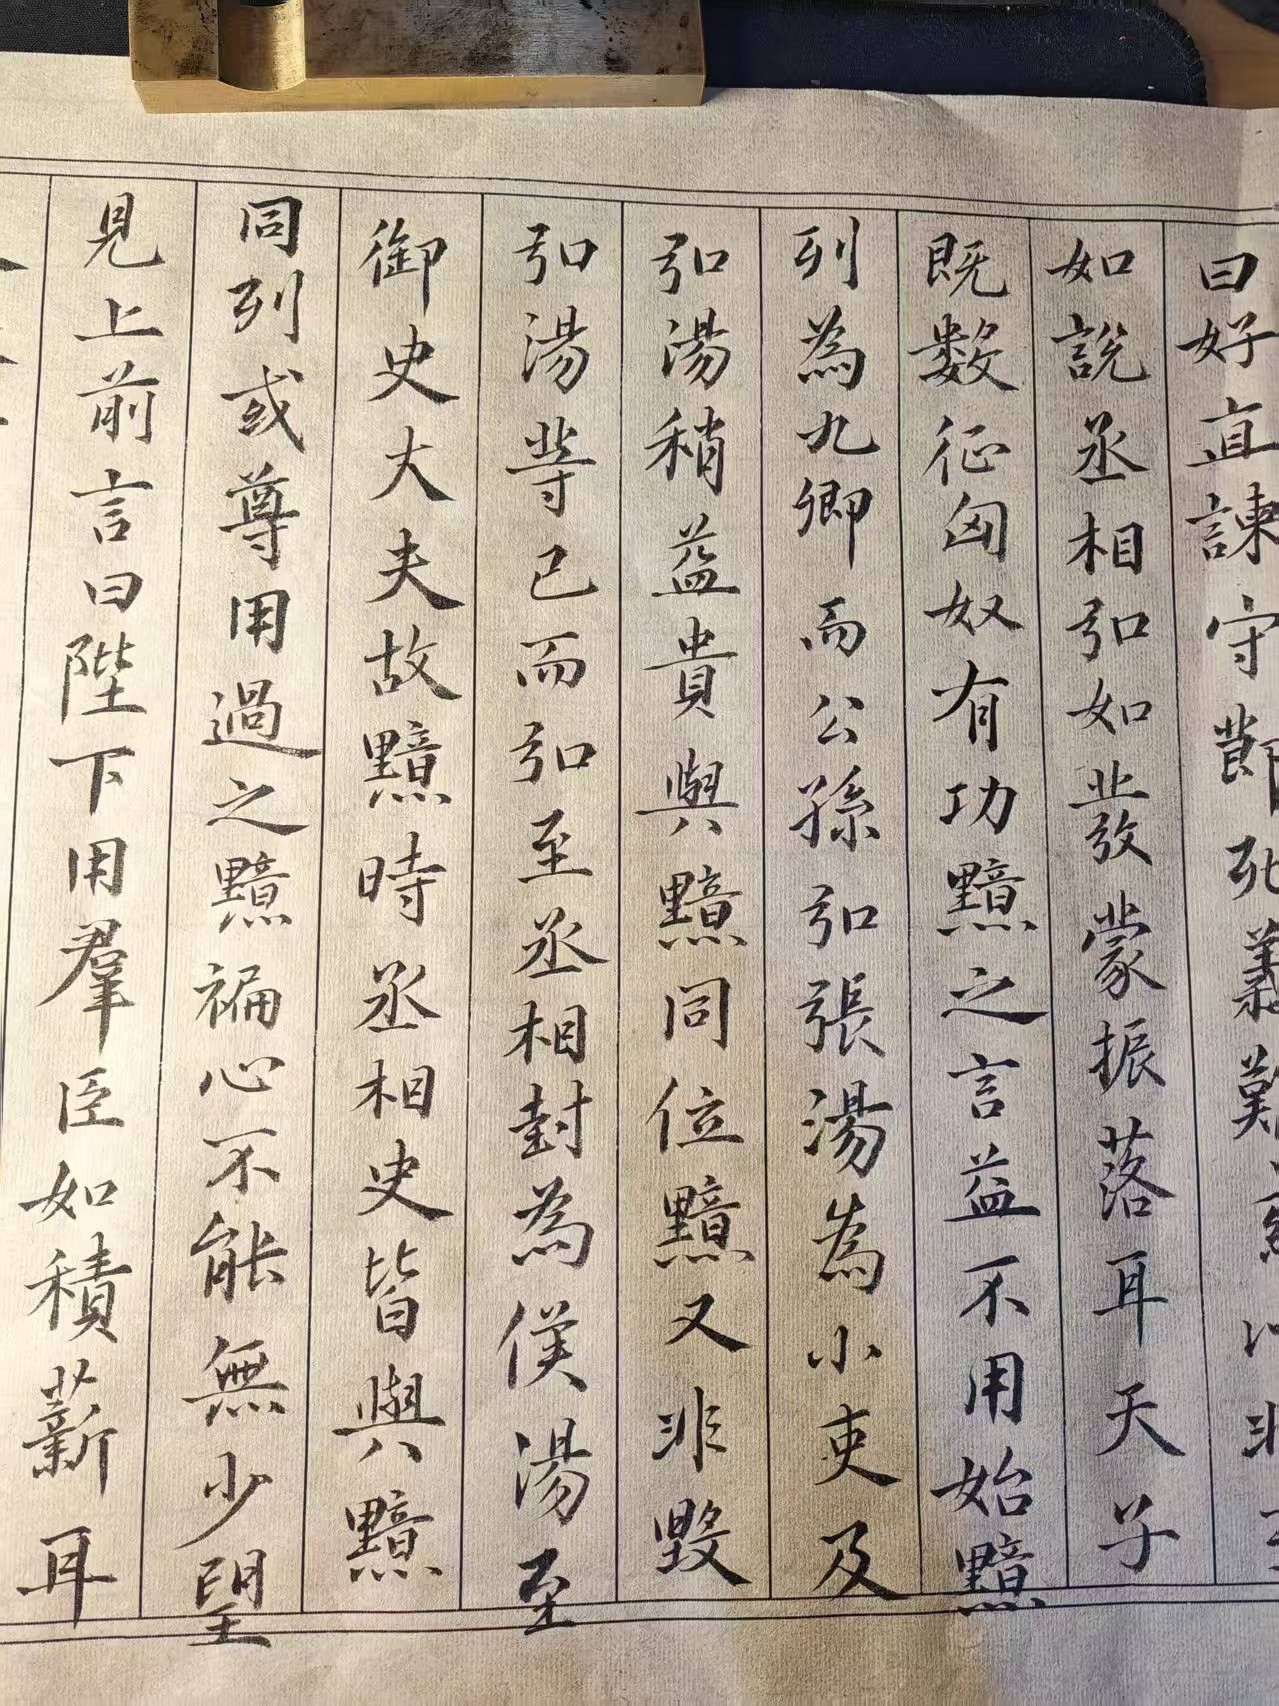 曰好直諫守節死義難惑以非至
如說丞相弘如發蒙振落耳天子
既數征匈奴有功黯之言益不用始黯
列為九卿而公孫弘張湯為小吏及
弘湯稍益貴與黯同位黯又非毀
弘湯等已而弘至丞相封為侯湯至
御史大夫故黯時丞相史皆與黯
同列或尊用過之黯褊心不能無少望
見上前言曰陛下用羣臣如積薪耳